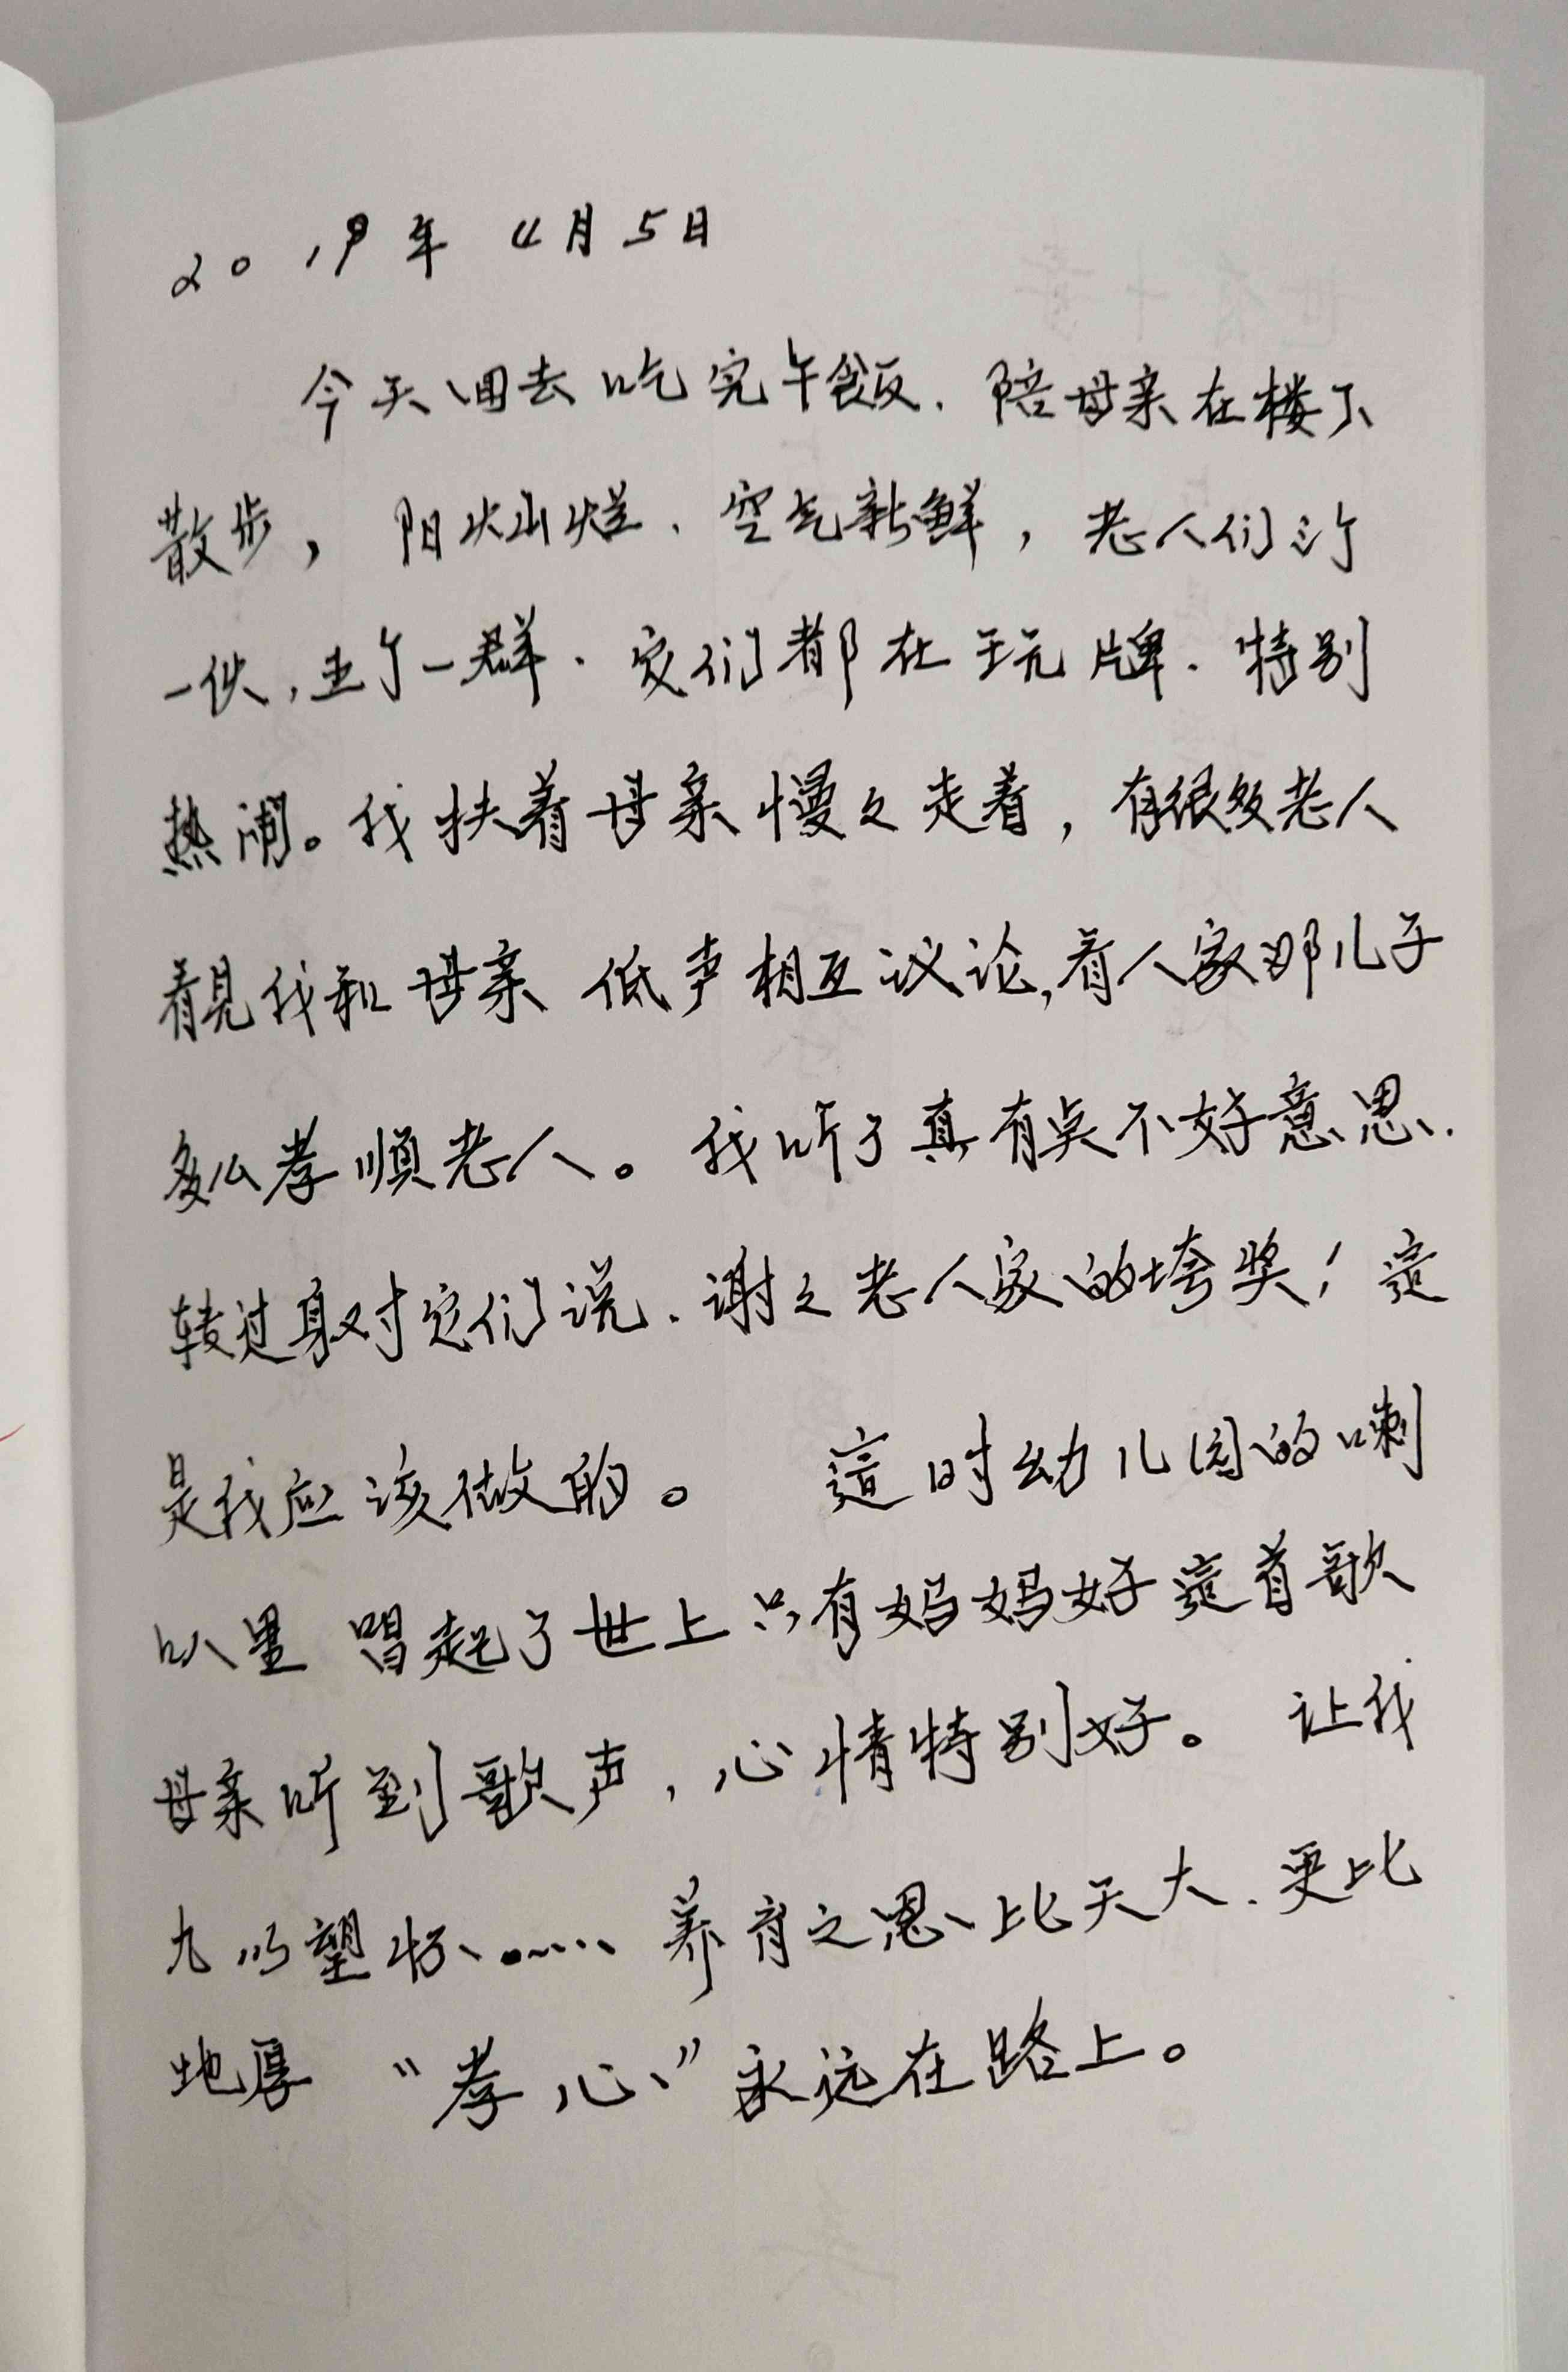 2019年 4月5日
今天回去吃完午飯、陪母亲在楼下
散步，阳光灿烂、空气新鲜，老人们三个
一伙，五个一群、它们都在玩牌、特别
热闹。我扶着母亲慢々走着，有很多老人
看見我和母亲 低声相互议论，看人家那儿子
多么孝顺老人。我听了真有点不好意思、
转过身对它们说、谢々老人家的垮奖！這
是我应该做的。 這时幼儿园的喇
叭里 唱起了世上只有妈妈好這首歌
母亲听到歌声，心情特别好。 让我
九 …… 养育之恩比天大、更比
地厚 “孝心”永远在路上。